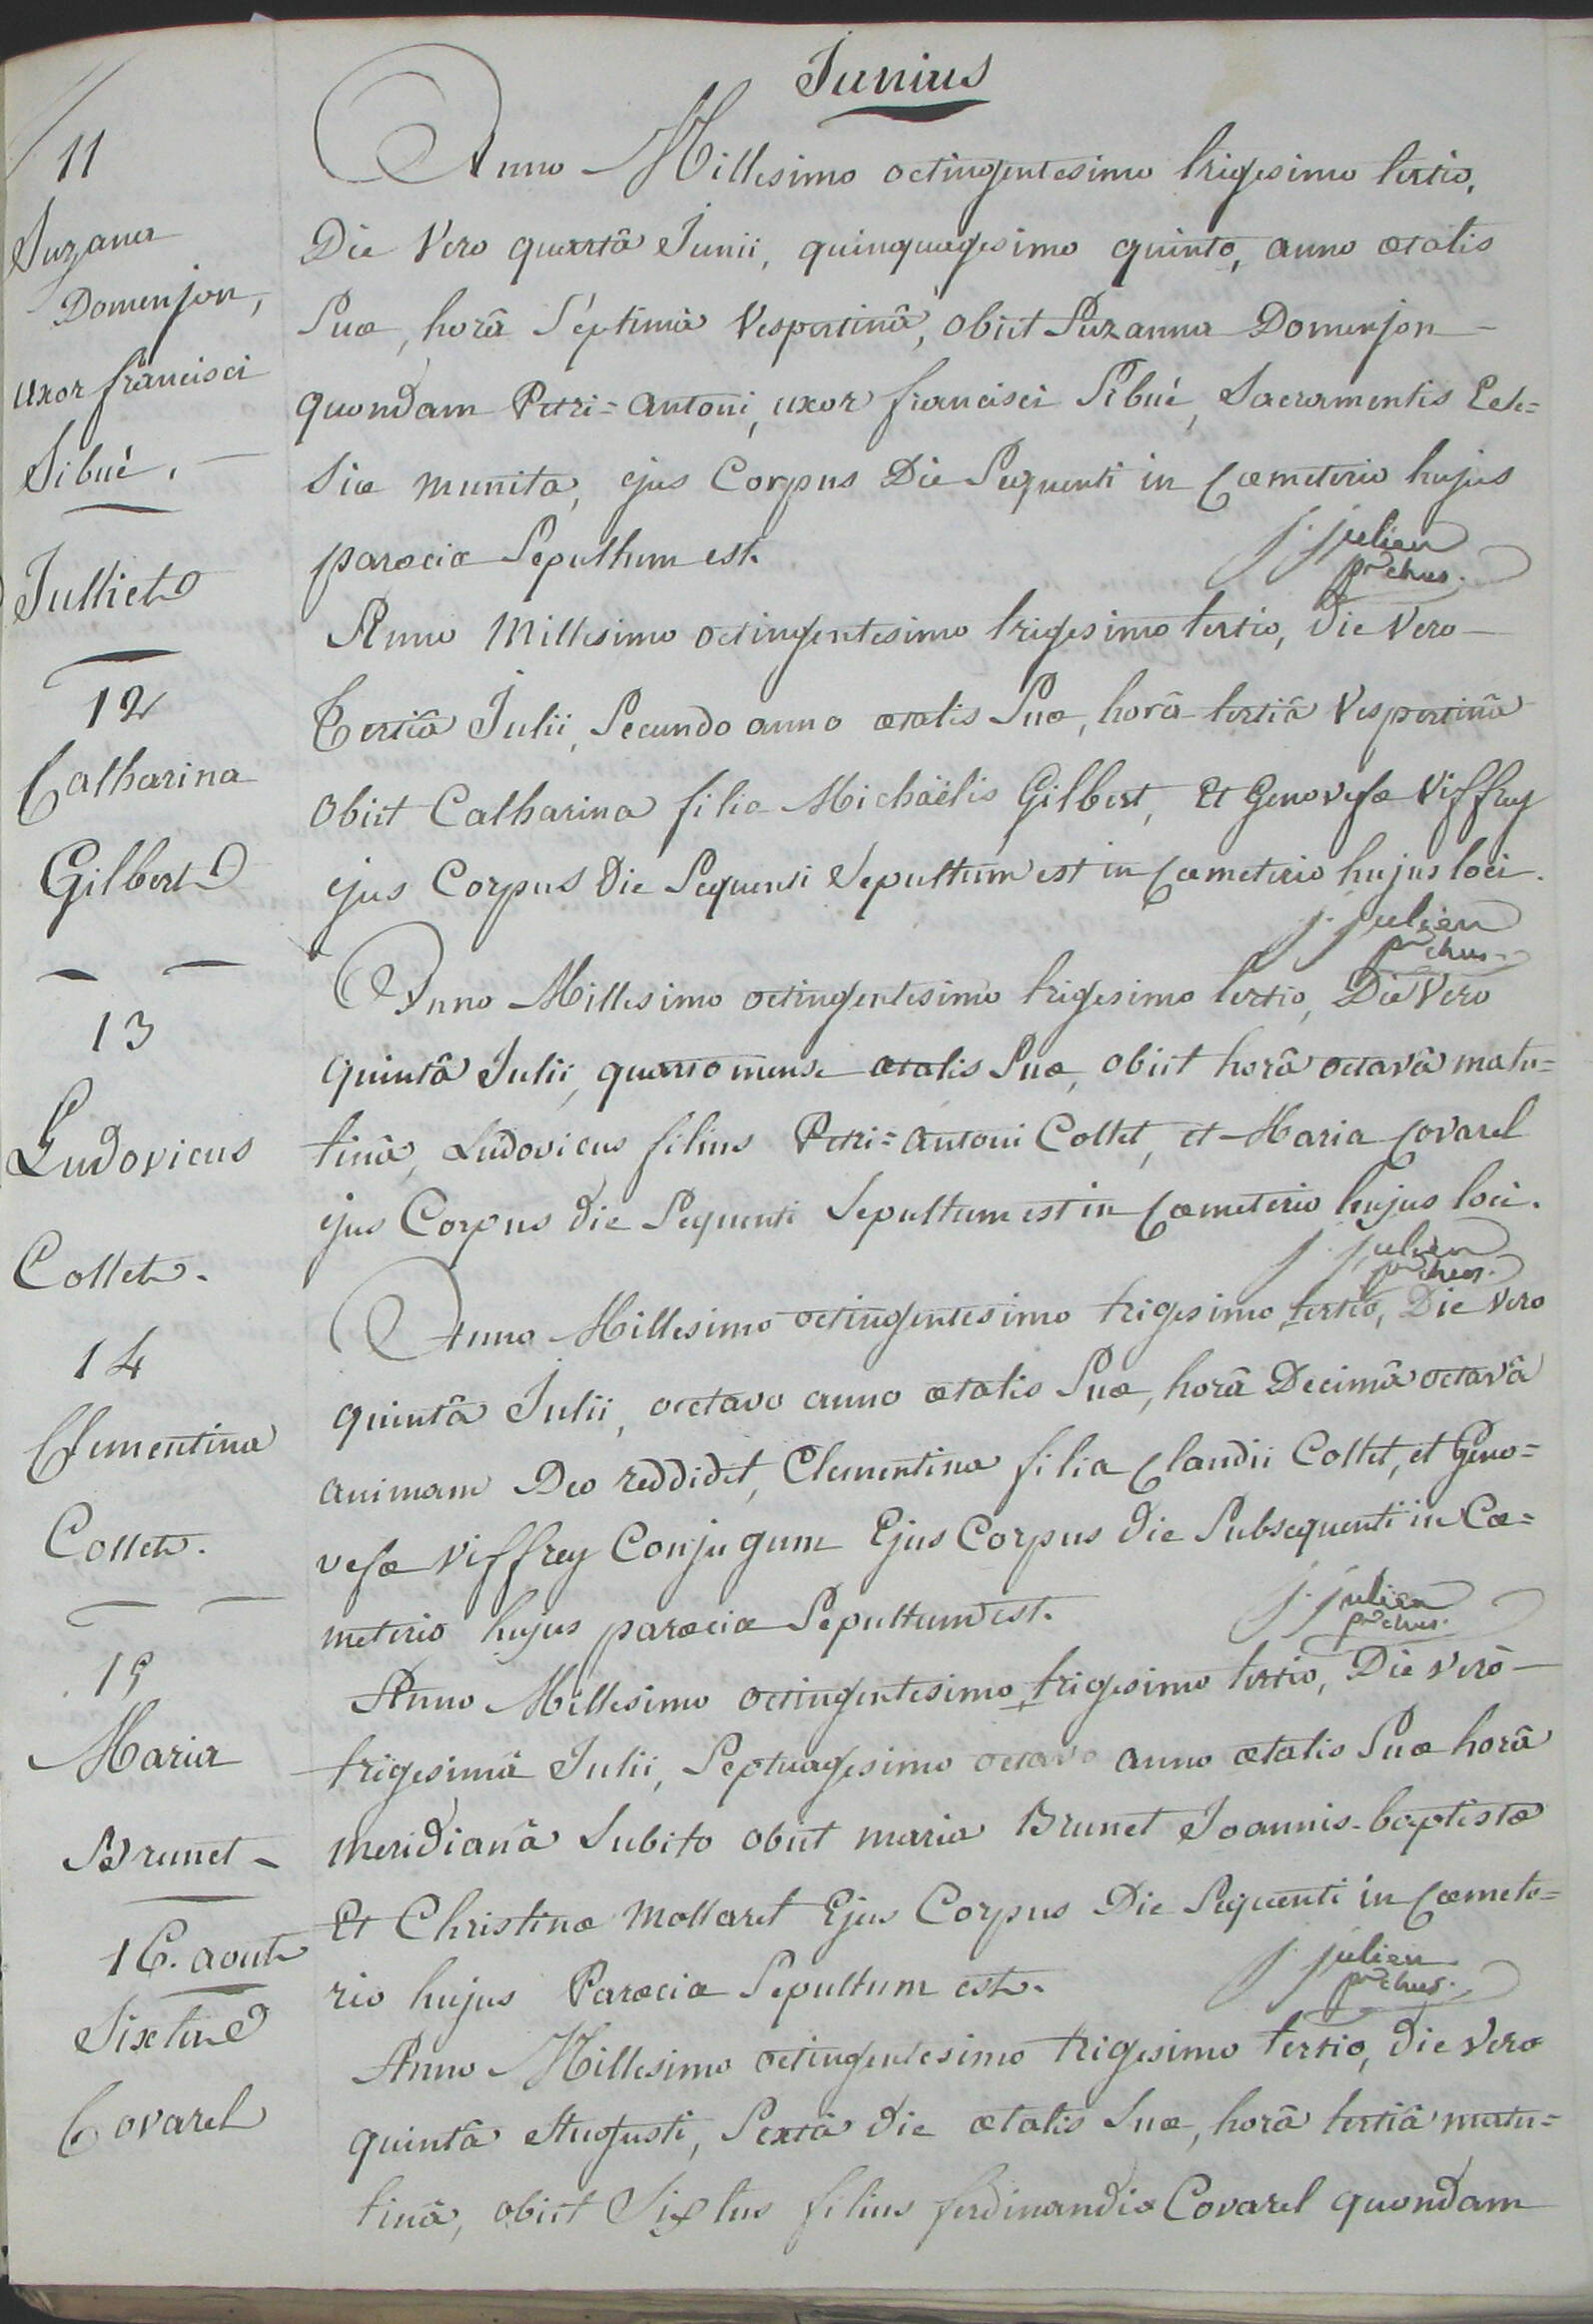 Junius
11
Suzana
Domenjon,
uxor francisci
Sibué. —
Anno Millesimo octingentesimo trigesimo tertio,
Die Vero quartâ Junii, quinquagesimo quinto, anno ætatis
Suæ, horâ Septimâ Vespertinâ, obiit Suzanna Domenjon —
quondam Petri=antoni, uxor francisci Sibué, Sacramentis Ecle=
siæ munita, ejus Corpus Die Sequenti in Cœmeterio hujus
parœciæ Sepultum est.
j. julien
pr chus.
Julliet
12
Catharina
Gilbert
Anno Millesimo octingentesimo trigesimo tertio, Die Vero —
Tertiâ Julii, Secundo anno ætatis Suæ, horâ tertiâ Vespertinâ
obiit Catharina filia Michaëlis Gilbert, Et Genovefæ Viffrey
ejus Corpus Die Sequensi Sepultum est in Cœmeterio hujus loci.
j. julien
pr chus.
13
Ludovicus
Collet.
Anno Millesimo octingentesimo trigesimo tertio, Die Vero
quintâ Julii, quarto mense ætatis Suæ, obiit horâ octavâ matu=
tinâ, Ludovicus filius Petri=antoni Collet, et Maria Covarel
ejus Corpus die Sequenti Sepultum est in Cœmeterio hujus loci.
j. julien
pr chus.
14
Clementina
Collet.
Anno Millesimo octingentesimo trigesimo tertio, Die Vero
quintâ Julii, octavo anno ætatis Suæ, horâ Decimâ octavâ
animam Deo reddidit, Clementina filia Claudii Collet, et Geno=
vefæ Viffrey Conjugum Ejus Corpus die Subsequenti in Cœ=
meterio hujus parœciæ Sepultum est.
j. julien
pr chus.
15
Maria
Brunet —
Anno Millesimo octingentesimo trigesimo tertio, Die Vero —
trigesimâ Julii, Septuagesimo octavo anno ætatis Suæ horâ
meridianâ Subito obiit maria Brunet Joannis-baptistæ
Et Christinæ Mollaret Ejus Corpus Die Sequenti in Cœmete=
rio hujus Parœciæ Sepultum est.
j. julien
pr chus.
16. aout
Sixte
Covarel
Anno Millesimo octingentesimo trigesimo tertio, die Vero
quintâ Augusti, Sextâ die ætatis Suæ, horâ tertiâ matu=
tinâ, obiit Sixtus filius ferdinandi Covarel quondam